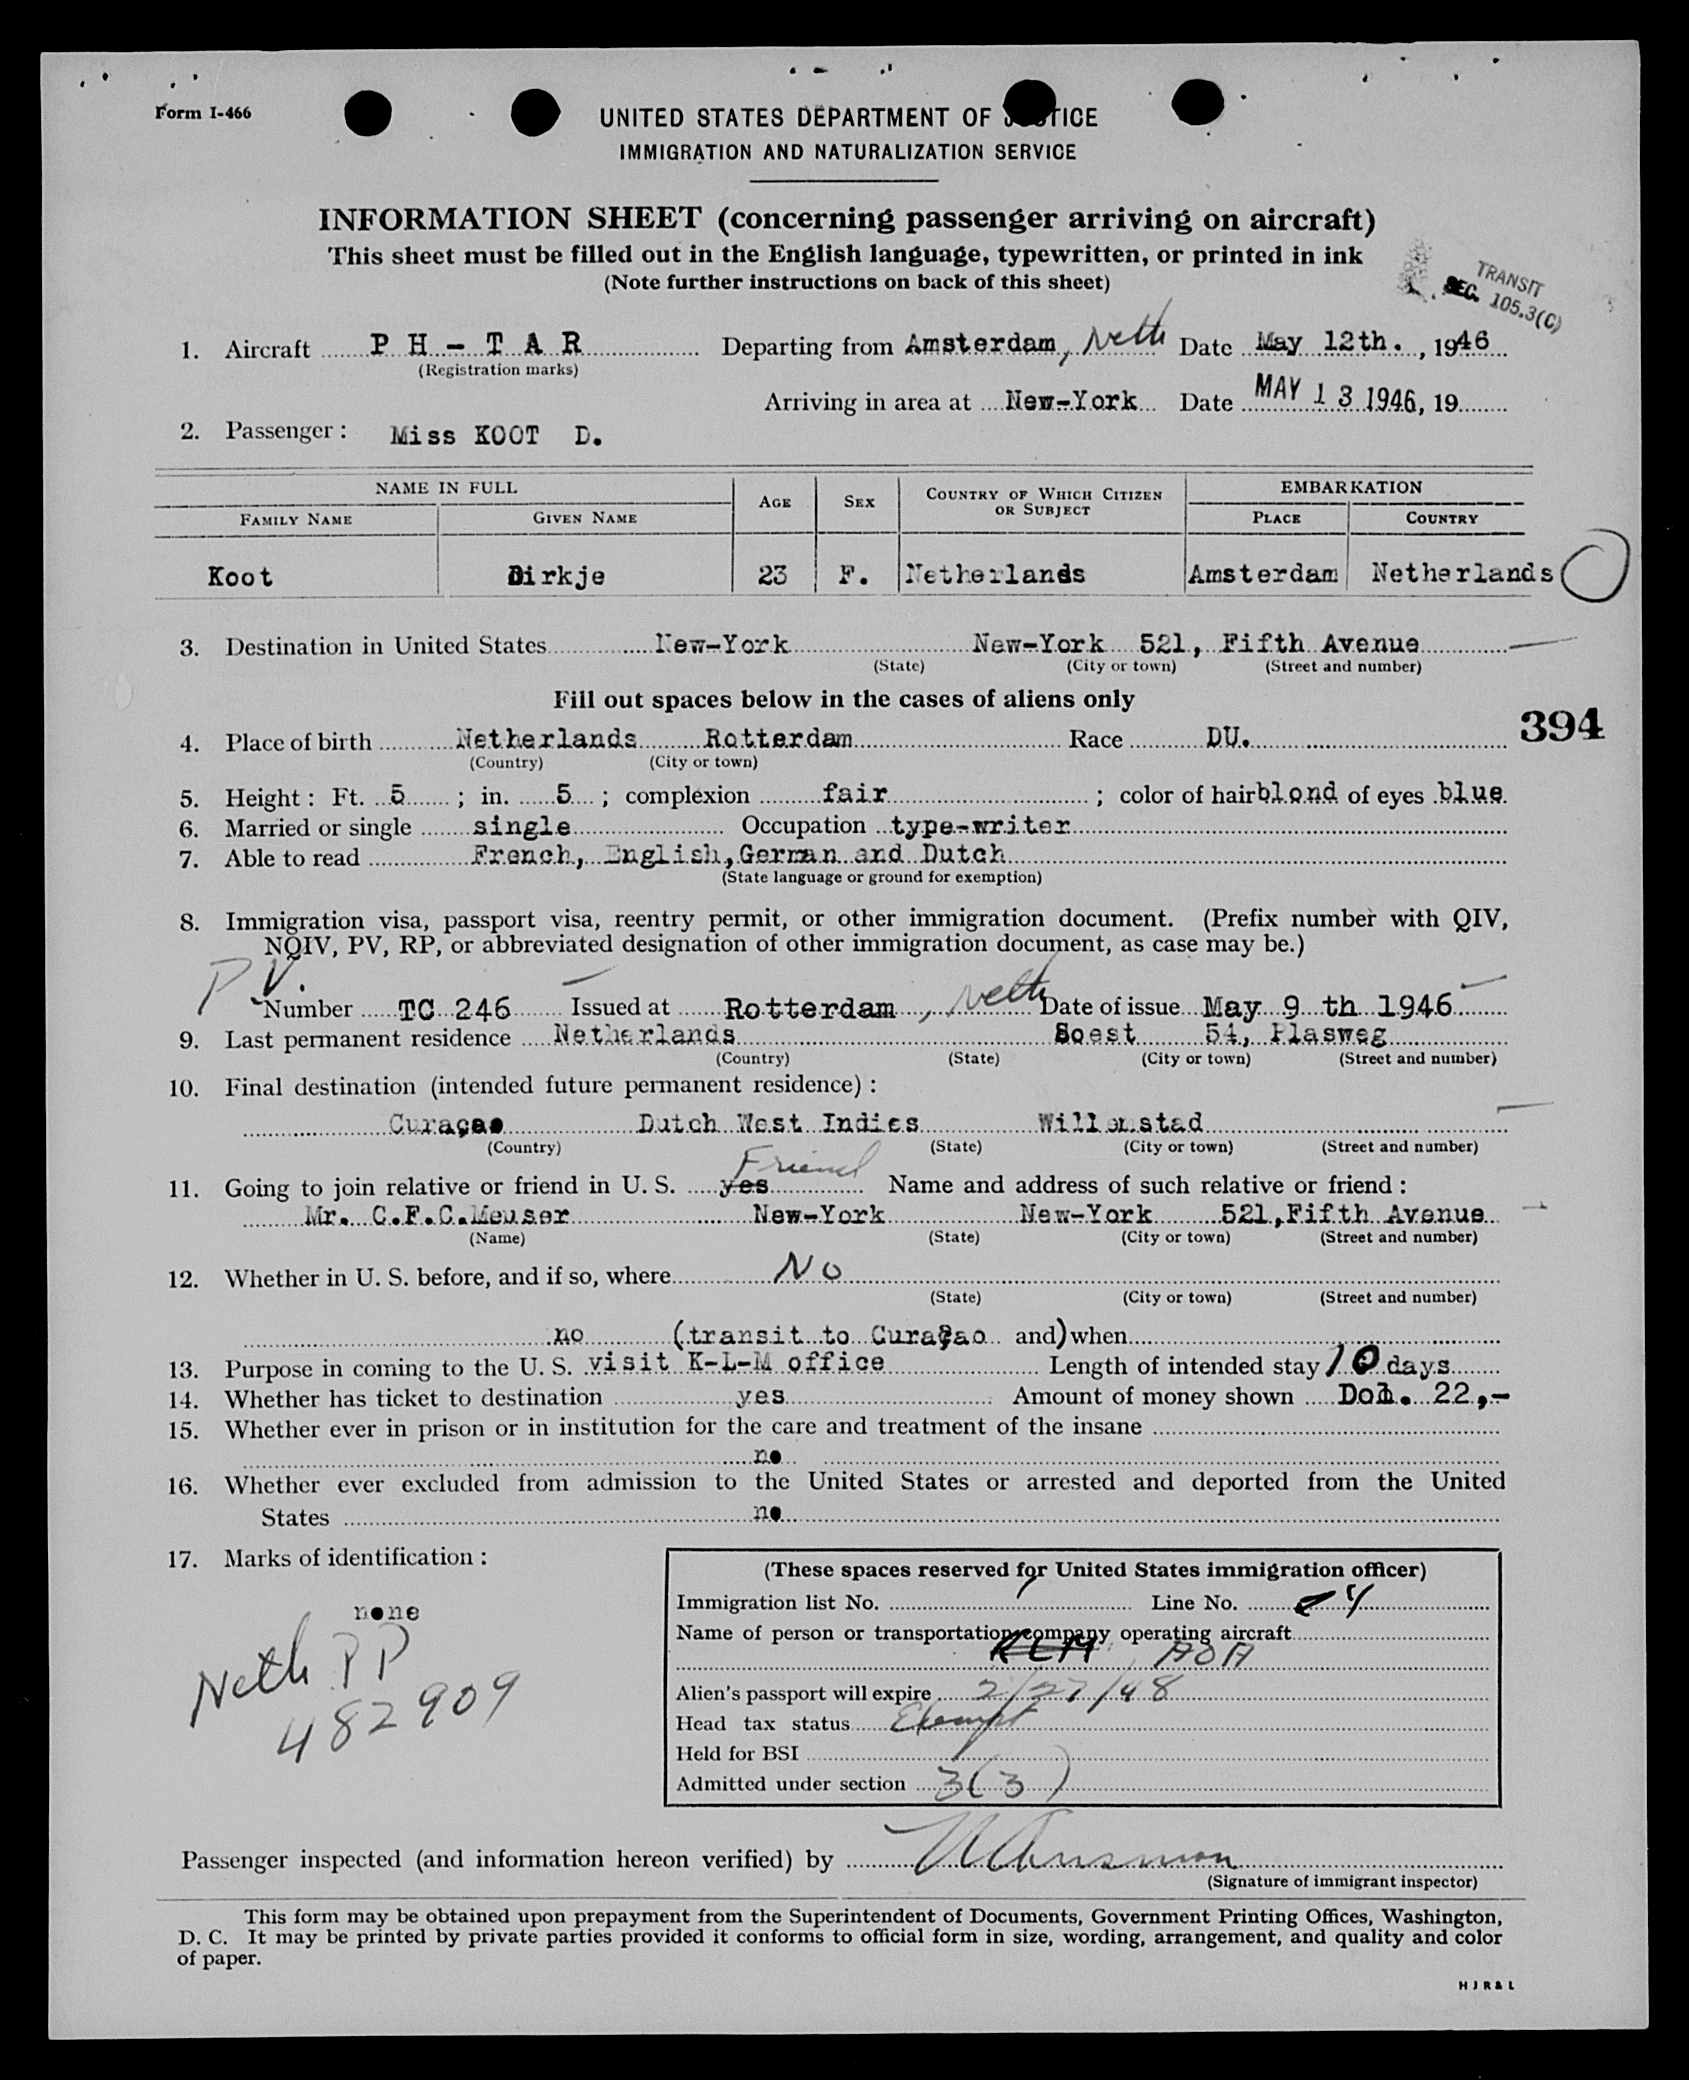 Form I-466
UNITED STATES DEPARTMENT OF JUSTICE
IMMIGRATION AND NATURALIZATION SERVICE
INFORMATION SHEET (concerning passenger arriving on aircraft)
This sheet must be filled out in the English language, typewritten, or printed in ink
(Note further instructions on back of this sheet)
TRANSIT
SEC. 105.3(C)
1. Aircraft P H - T A R Departing from Amsterdam, Neth Date May 12th. , 1946
(Registration marks)
Arriving in area at New-York Date MAY 13 1946, 19
2. Passenger: Miss KOOT D.
NAME IN FULL AGE SEX COUNTRY OF WHICH CITIZEN OR SUBJECT EMBARKATION
FAMILY NAME GIVEN NAME PLACE COUNTRY
Koot Dirkje 23 F. Netherlands Amsterdam Netherlands
3. Destination in United States New-York New-York 521, Fifth Avenue
(State) (City or town) (Street and number)
Fill out spaces below in the cases of aliens only
394
4. Place of birth Netherlands Rotterdam Race DU.
(Country) (City or town)
5. Height: Ft. 5 ; in. 5 ; complexion fair ; color of hair blond of eyes blue
6. Married or single single Occupation type-writer
7. Able to read French, English, German and Dutch
(State language or ground for exemption)
8. Immigration visa, passport visa, reentry permit, or other immigration document. (Prefix number with QIV,
NQIV, PV, RP, or abbreviated designation of other immigration document, as case may be.)
PV.
Number TC 246 Issued at Rotterdam, Neth Date of issue May 9 th 1946
9. Last permanent residence Netherlands Soest 54, Plasweg
(Country) (State) (City or town) (Street and number)
10. Final destination (intended future permanent residence):
Curaçao Dutch West Indies Willemstad
(Country) (State) (City or town) (Street and number)
Friend
11. Going to join relative or friend in U. S. yes Name and address of such relative or friend:
Mr. C.F.C.Meuser New-York New-York 521, Fifth Avenue
(Name) (State) (City or town) (Street and number)
12. Whether in U. S. before, and if so, where No
(State) (City or town) (Street and number)
no (transit to Curaçao and) when
13. Purpose in coming to the U. S. visit K-L-M office Length of intended stay 10 days
14. Whether has ticket to destination yes Amount of money shown Dol. 22,-
15. Whether ever in prison or in institution for the care and treatment of the insane
no
16. Whether ever excluded from admission to the United States or arrested and deported from the United
States no
17. Marks of identification:
none
Neth PP
482909
(These spaces reserved for United States immigration officer)
Immigration list No. Line No. 4
Name of person or transportation company operating aircraft
KLM AOA
Alien's passport will expire 2/27/48
Head tax status Exempt
Held for BSI
Admitted under section 3(3)
Passenger inspected (and information hereon verified) by
(Signature of immigrant inspector)
This form may be obtained upon prepayment from the Superintendent of Documents, Government Printing Offices, Washington,
D. C. It may be printed by private parties provided it conforms to official form in size, wording, arrangement, and quality and color
of paper.
H J R & L